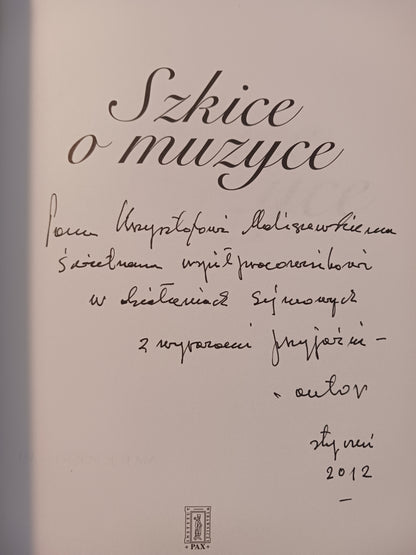 Szkice
o muzyce
Panu Krzysztofowi Maliszewskiemu
świetnemu współpracownikowi
w działaniach Sejmowych
z wyrazami przyjaźni –
autor
styczeń
2012
–
PAX